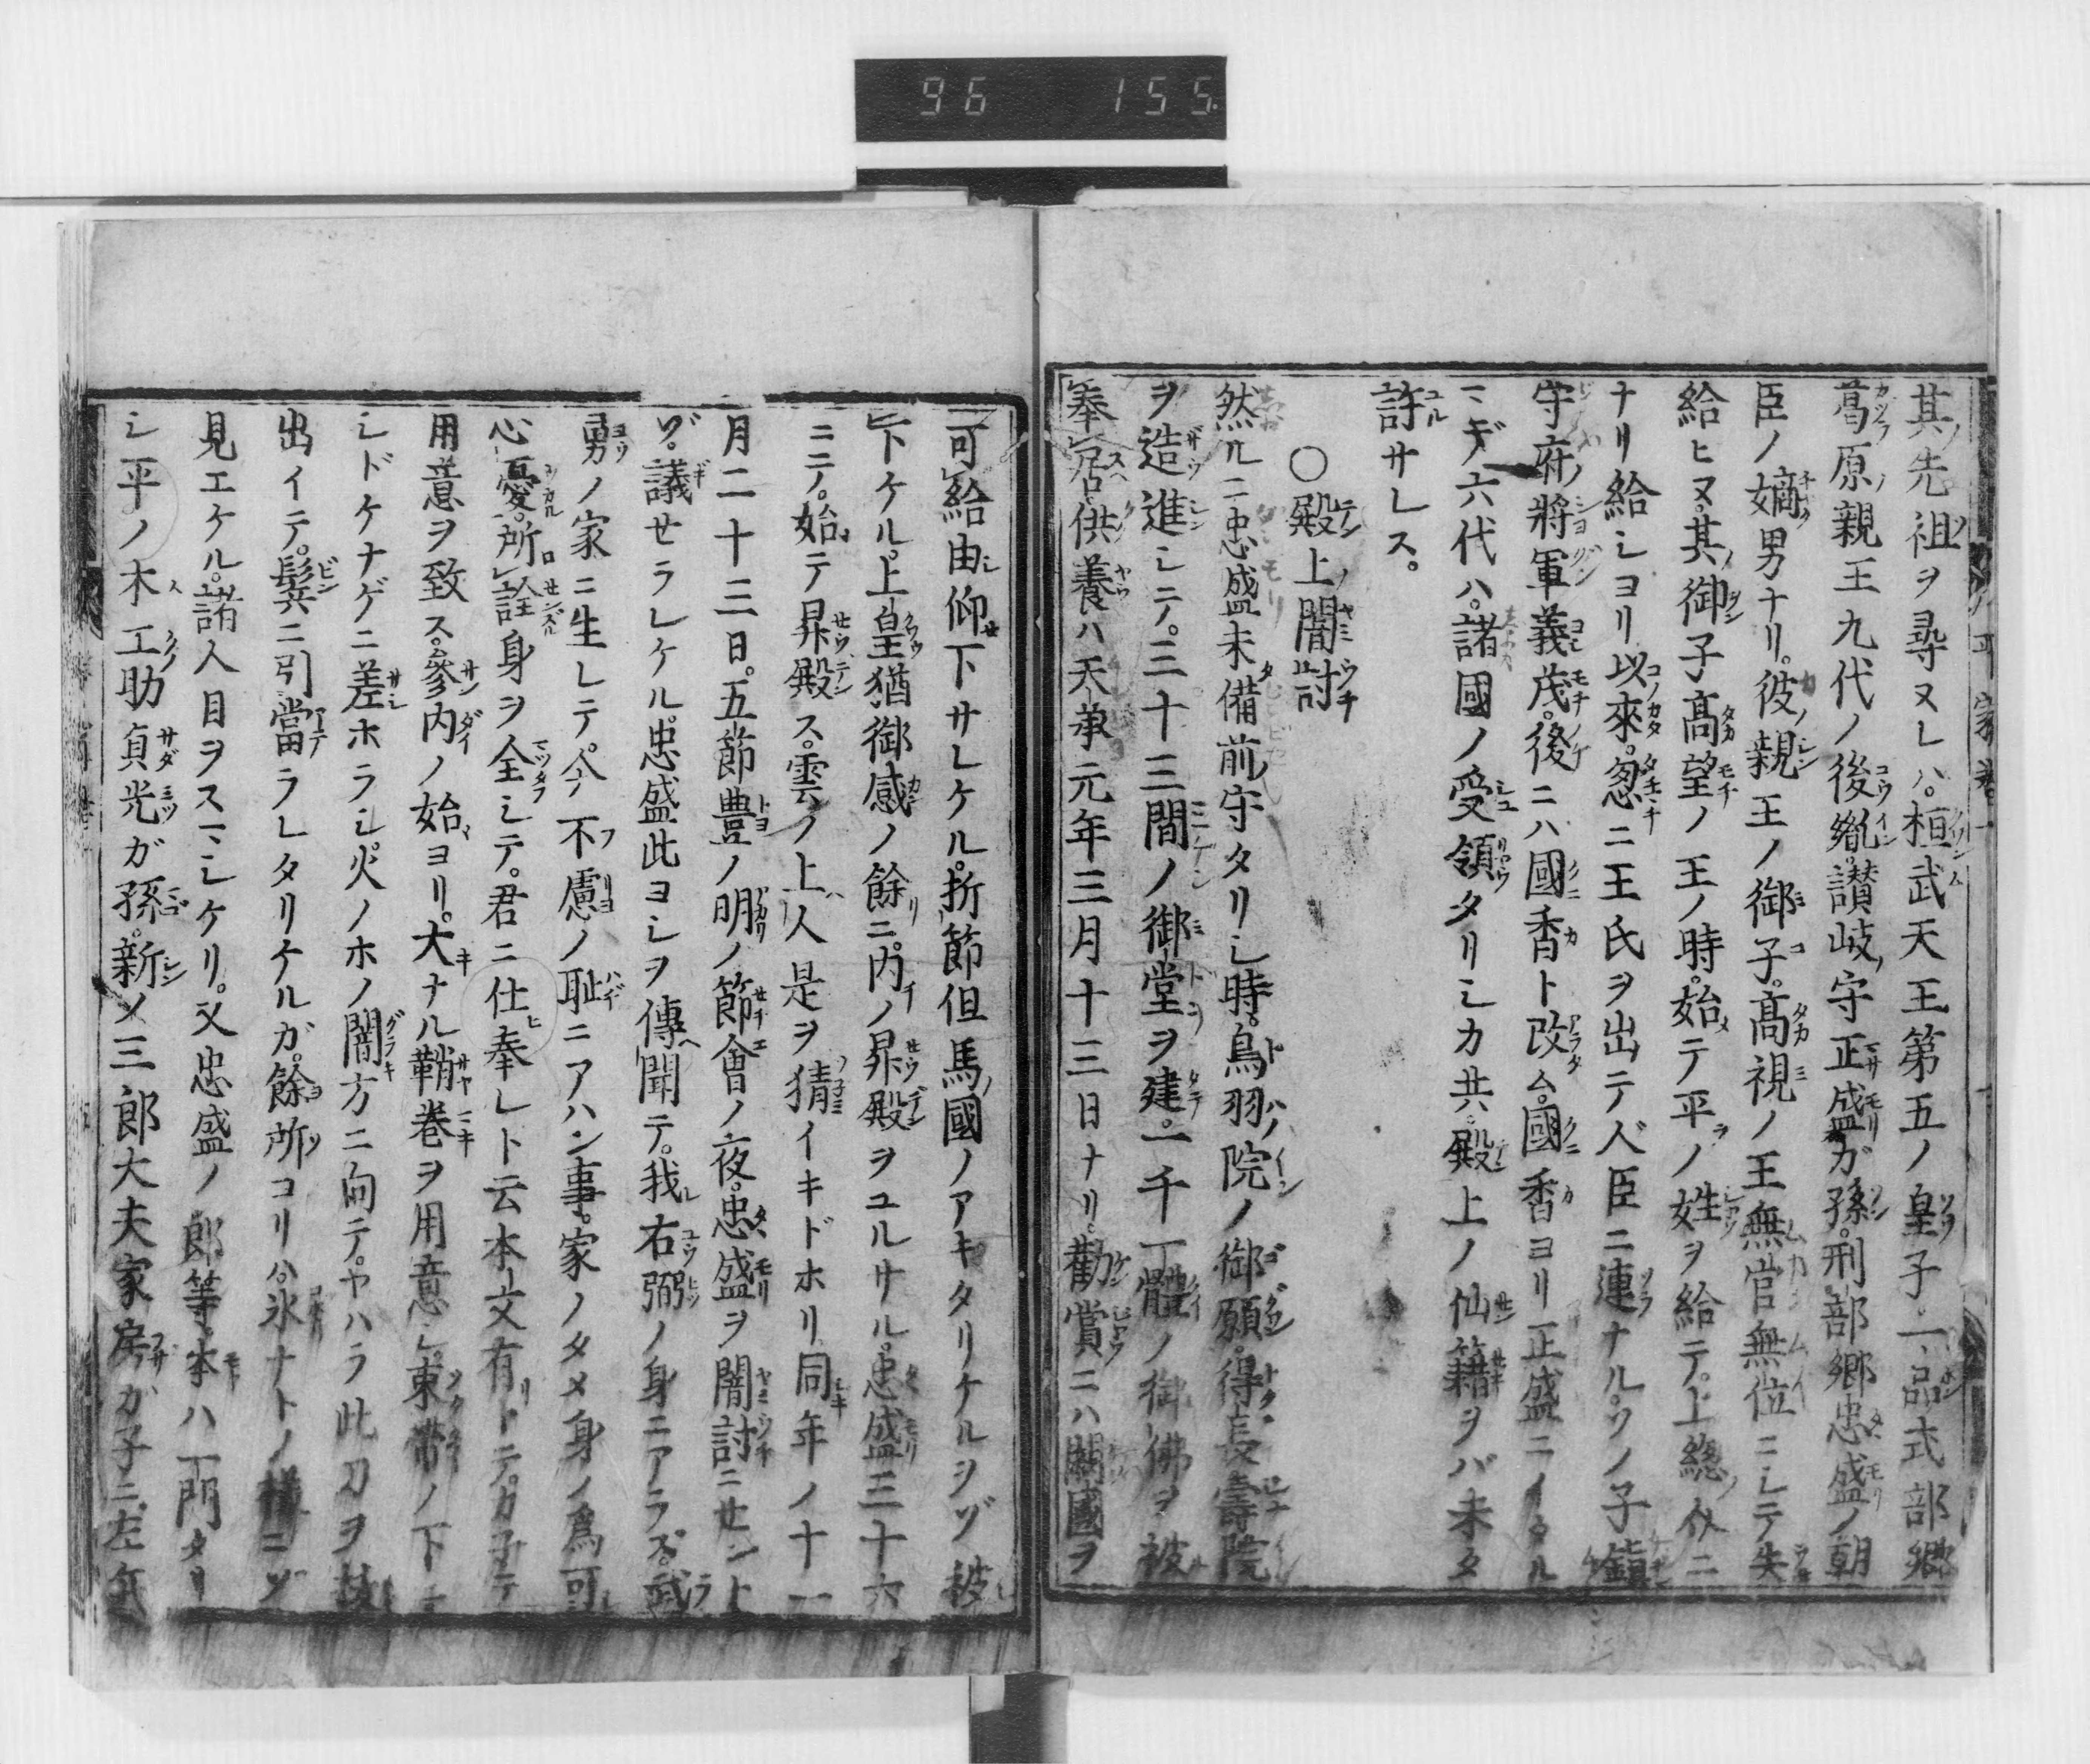 96 155
其先祖ヲ尋ヌレハ。桓武天王第五ノ皇子一品式部卿
葛原親王九代ノ後胤。讃岐守正盛ガ孫。刑部卿忠盛ノ朝
臣ノ嫡男ナリ。彼親王ノ御子。髙視ノ王無官無位ニシテ失
給ヒヌ。其御子髙望ノ王ノ時。始テ平ノ姓ヲ給テ。上總介ニ
ナリ給シヨリ以來。忽ニ王氏ヲ出テ人臣ニ連ナル。ソノ子鎮
守府將軍義茂。後ニハ國香ト改ム。國香ヨリ正盛ニイタル
マデ六代ハ。諸國ノ受領タリシカ共。殿上ノ仙籍ヲバ未タ
許サレス。
〇殿上闇討
然ルニ忠盛未備前守タリシ時。鳥羽院ノ御願。得長壽院
ヲ造進シテ。三十三間ノ御堂ヲ建。一千一體ノ御佛ヲ被
奉居。供養ハ天承元年三月十三日ナリ。勸賞ニハ闕國ヲ
可給由仰下サレケル。折節但馬國ノアキタリケルヲゾ被
下ケル。上皇猶御感ノ餘ニ。内ノ昇殿ヲユルサル。忠盛三十六
ニテ。始テ昇殿ス。雲ノ上人是ヲ猜イキドホリ同年ノ十一
月二十三日。五節豊ノ明ノ節會ノ夜。忠盛ヲ闇討ニセント
ゾ。議セラレケル。忠盛此ヨシヲ傳聞テ。我右弼ノ身ニアラズ。武
勇ノ家ニ生レテ。今不慮ノ耻ニアハン事。家ノタメ身ノ爲可
心憂。所詮身ヲ全シテ。君ニ仕奉レト云本文有トテ。カ子テ
用意ヲ致ス。參内ノ始ヨリ。大ナル鞘巻ヲ用意シ。束帯ノ下ニ
シドケナゲニ差ホラシ。火ノホノ闇方ニ向テ。ヤハラ此刀ヲ抜
出イテ。鬂ニ引當ラレタリケルガ。餘所コリハ。氷ナトノ樣ニゾ
見エケル。諸人目ヲスマシケリ。又忠盛ノ郎等。本ハ一門タリ
シ平ノ木工助貞光ガ孫。新ノ三郎大夫家房ガ子ニ。左兵